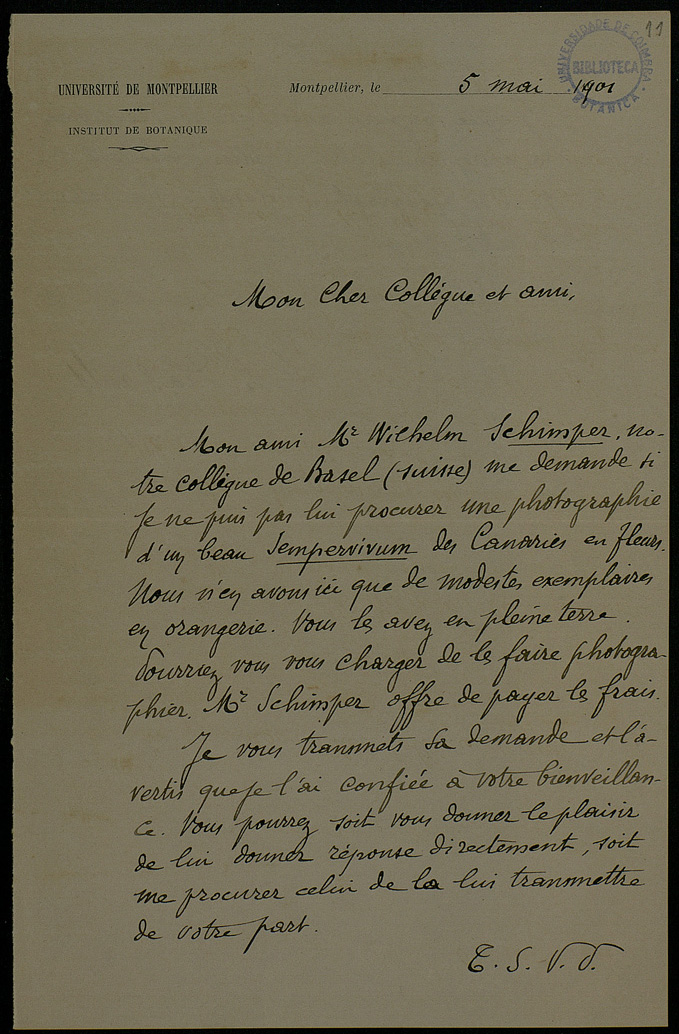 11
UNIVERSIDADE DE COIMBRA
BIBLIOTECA
BOTANICA
UNIVERSITÉ DE MONTPELLIER
INSTITUT DE BOTANIQUE
Montpellier, le 5 mai 1901
Mon Cher Collégue et ami,
Mon ami Mr Wilhelm Schimper, no-
tre collégue de Basel (suisse) me demande si
Je ne puis pas lui procurer une photographie
d'un beau Sempervivum des Canaries en fleurs.
Nous n'en avons ici que de modestes exemplaires
en orangerie. Vous les avez en pleine terre.
Pourriez vous vous charger de les faire photogra-
phier. Mr Schimper offre de payer les frais.
Je vous transmets sa demande et l'a-
vertis que je l'ai confiée à votre bienveillan-
ce. Vous pourrez soit vous donner le plaisir
de lui donner réponse directement, soit
me procurer celui de la lui transmettre
de votre part.
T. S. V. P.